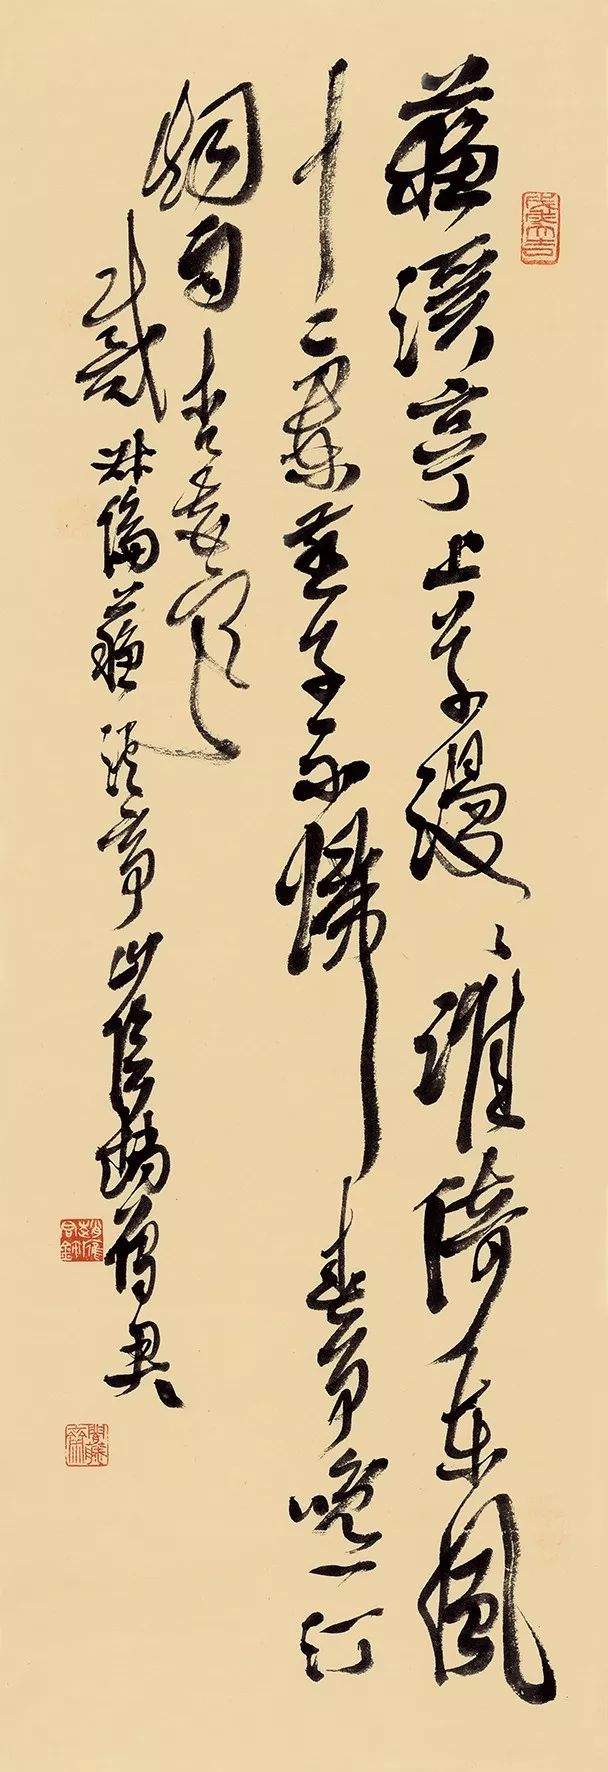 蘇溪亭上草漫〻誰倚東風
十二闌燕子不歸春事晚一汀
烟雨杏花寒
戴叔倫蘇溪亭山陰趙雁君